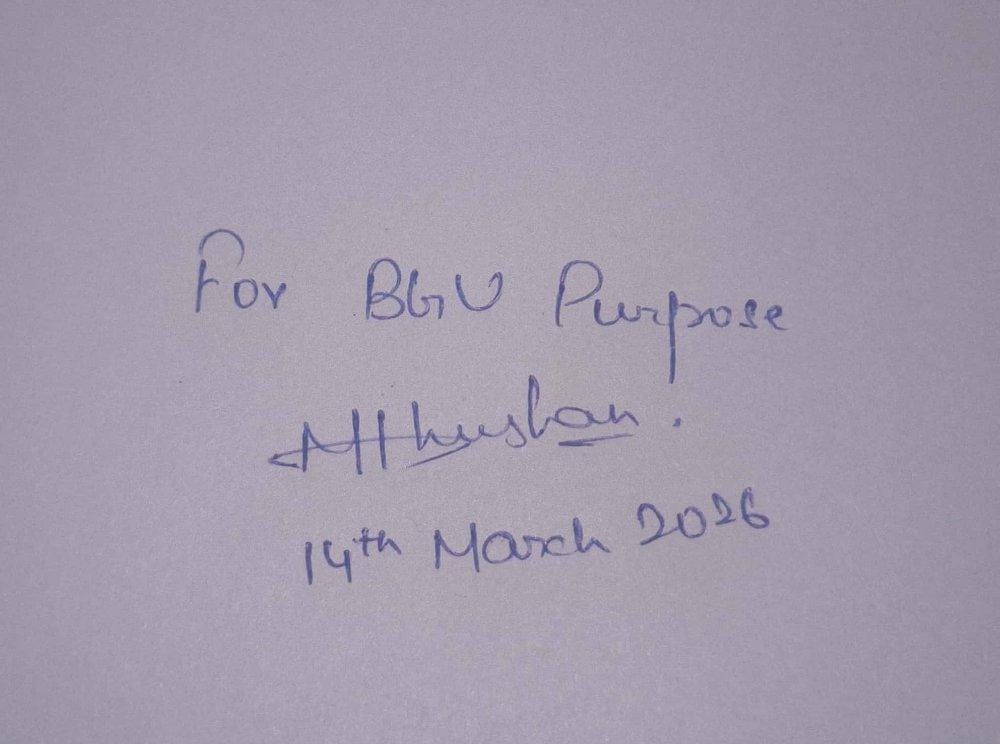 For BGV Purpose
14th March 2026